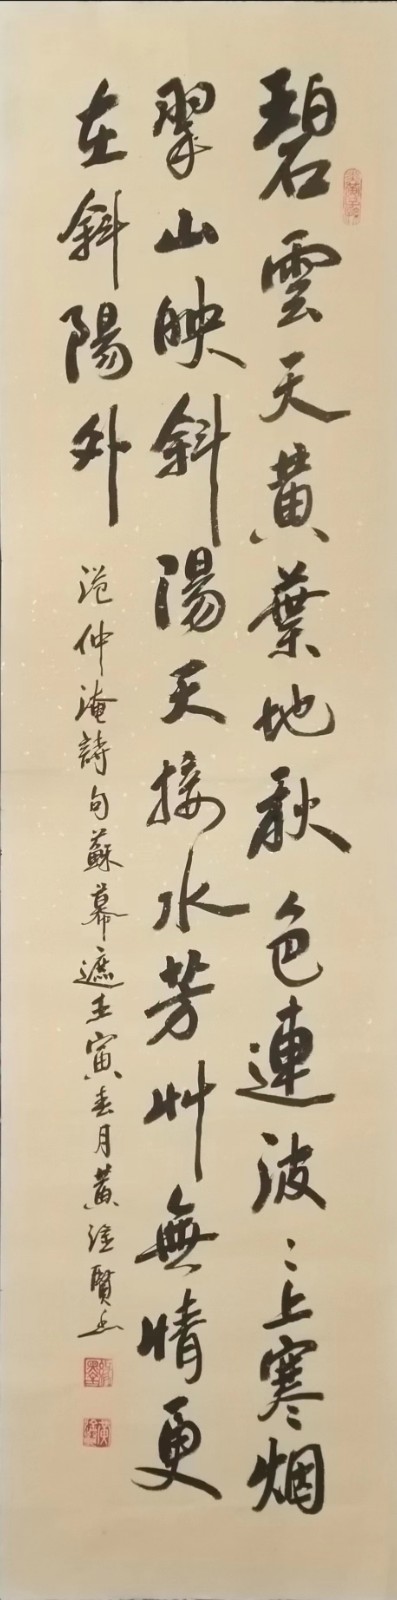 碧雲天黄葉地秋色連波〻上寒烟
翠山映斜陽天接水芳艸無情更
在斜陽外
范仲淹詩句蘇幕遮壬寅春月黄 賢書